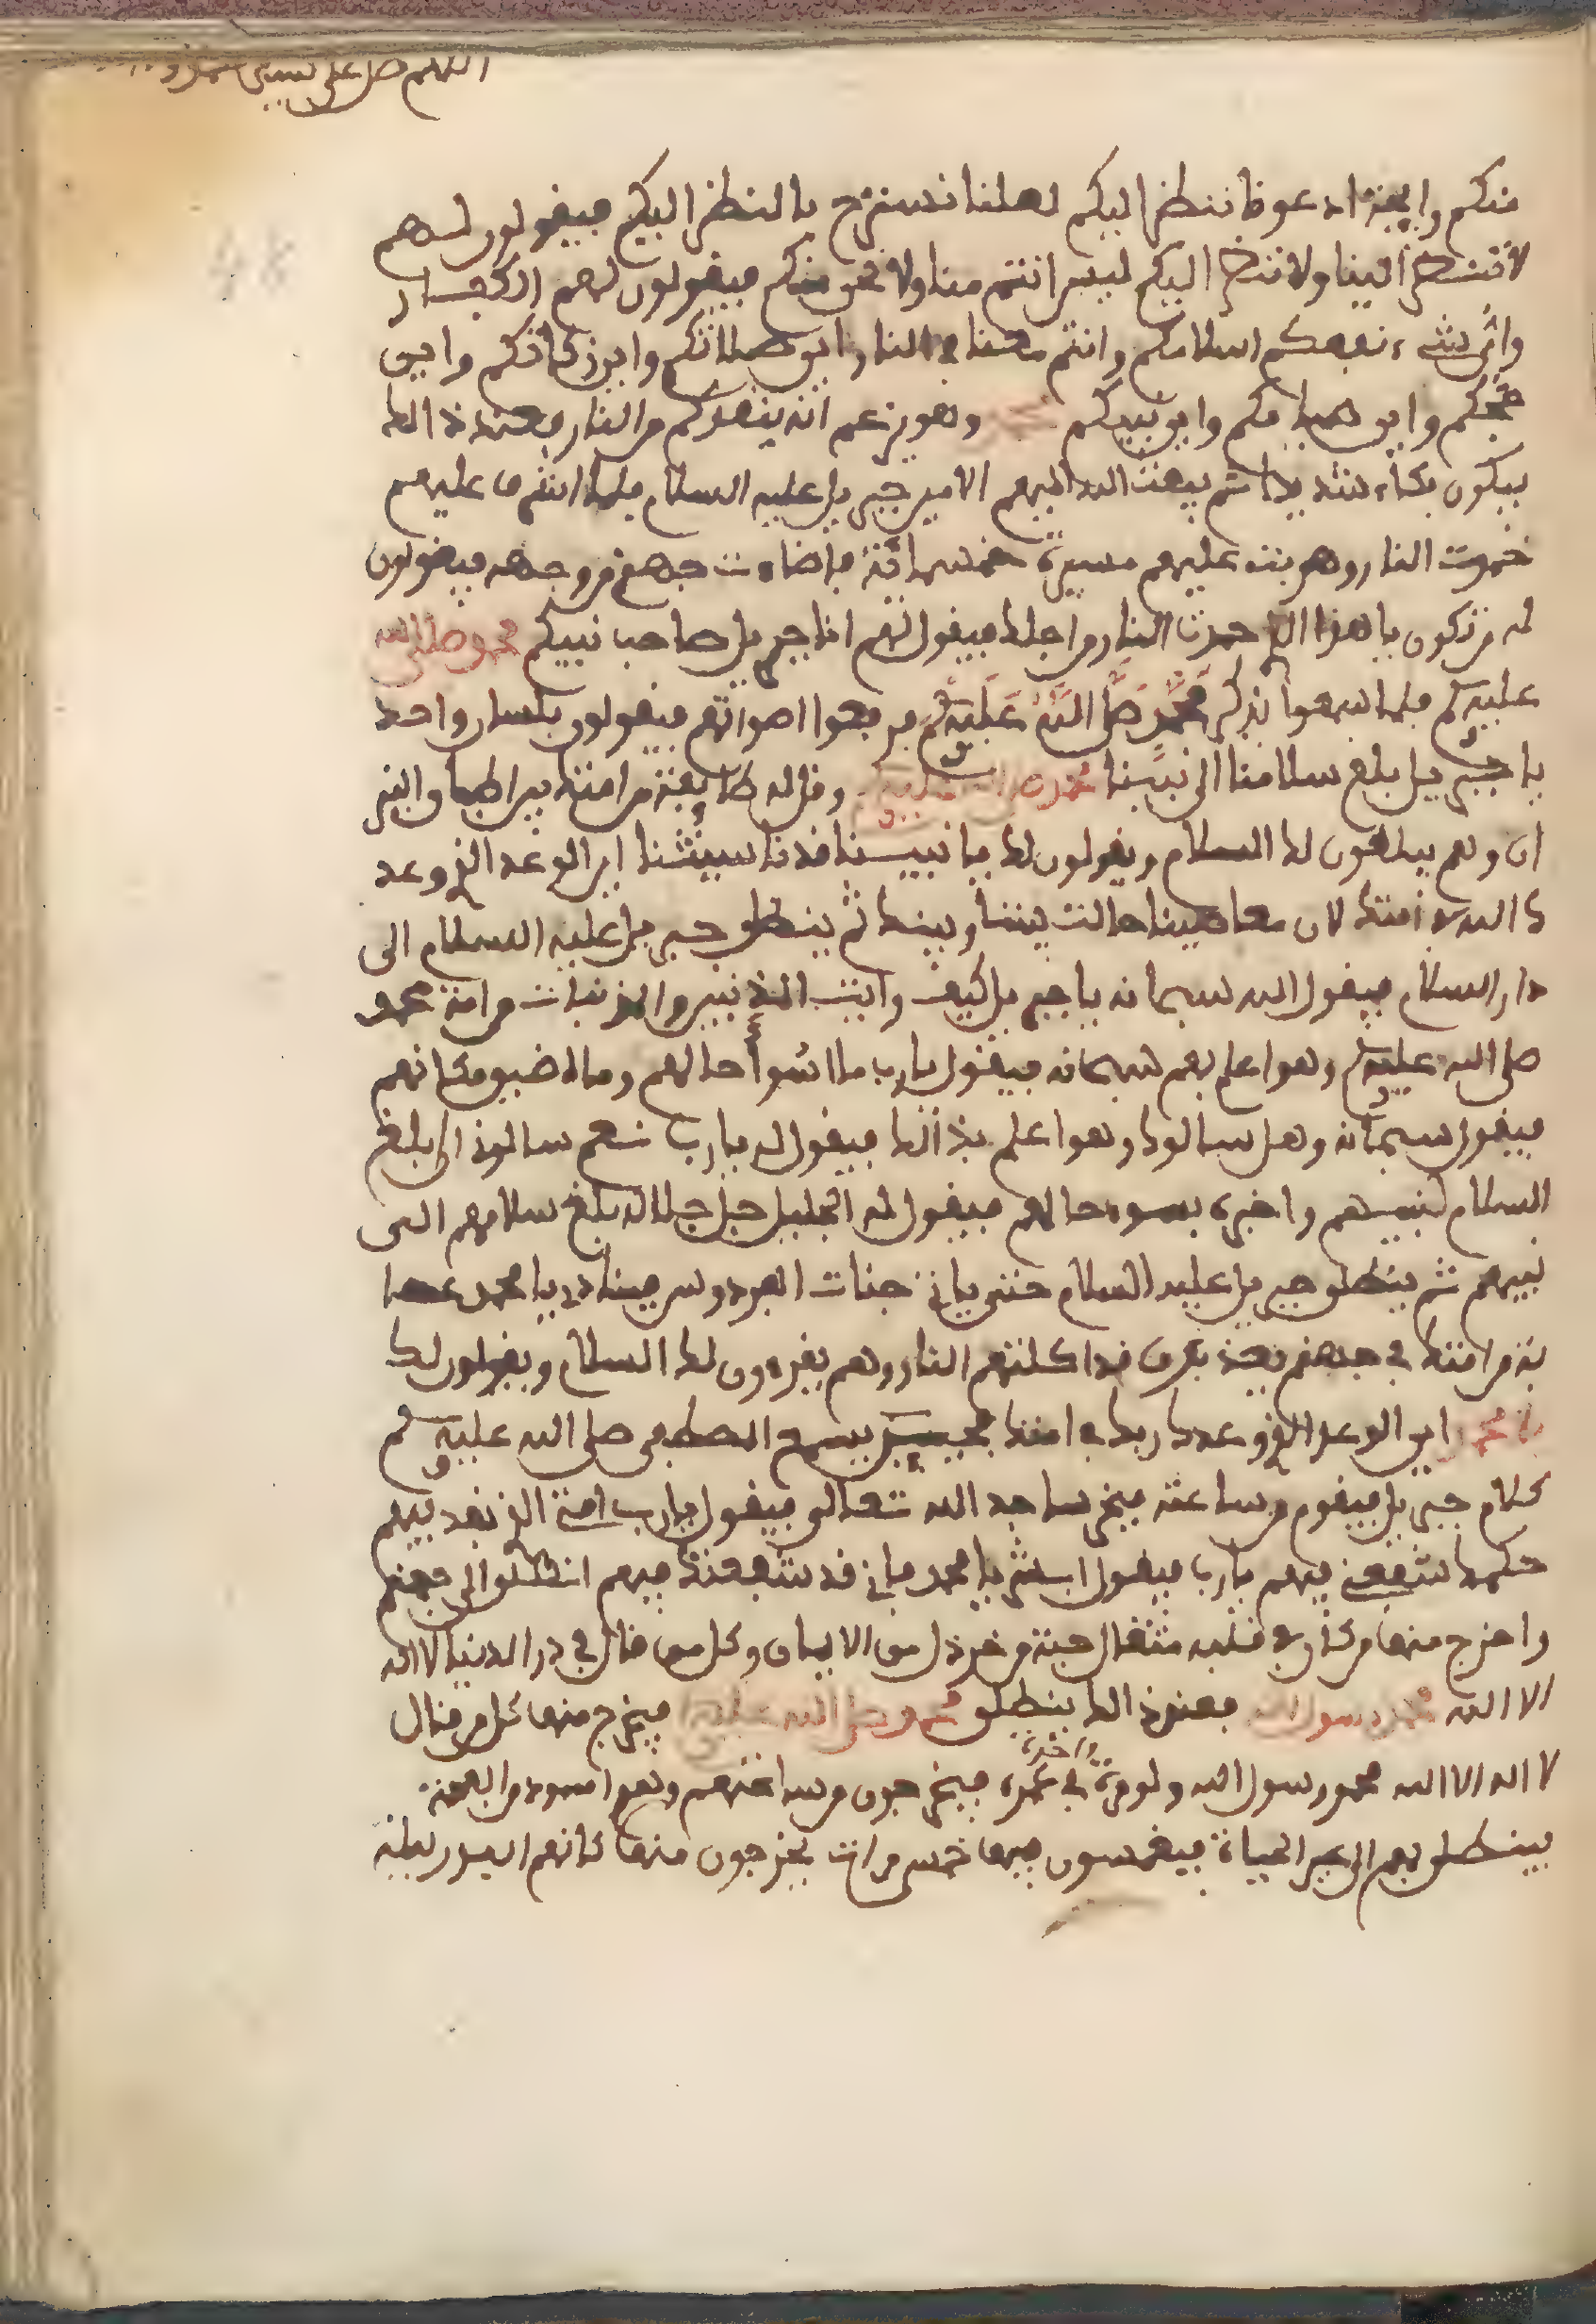 اللهم صل على سيدنا محمد
منكم رايحة ادعونا ننظر اليكم لعلنا نستريح بالنظر اليكم فيقولون لهم
لا تنظر الينا ولا ننظر اليكم ليس انتم منا ولا نحن منكم فيقولون لهم الكفار
واي شيء نفعكم اسلامكم وانتم معنا في النار اين صلاتكم واين زكاتكم واين
حجكم واين صيامكم واين نبيكم محمد وهو يزعم انه ينقذكم من النار فعند ذالك
يبكون بكاء شديدا ثم يبعث الله اليهم الامين جبريل عليه السلام فلما اشرف عليهم
خمدت النار وهربت عليهم مسيرة خمسمائة فاضاءت جهنم من وجهه فيقولون
له من تكون يا هذا الذي خمدت النار من اجلك فيقول لهم انا جبريل صاحب نبيكم محمد صلى الله
عليه وسلم فلما سمعوا بذكر محمد صلى الله عليه وسلم يرفعوا اصواتهم فيقولون بلسان واحد
يا جبريل بلغ سلامنا الى نبينا محمد صلى الله عليه وسلم وقل له طايفة من امتك بين اطباق النير
ان وهم يبلغون لك السلام ويقولون لك يا نبينا قدنا سيئتنا اين الوعد الذي وعد
ك الله في امتك لان معاصينا حالت بيننا وبينك ثم ينطلق جبريل عليه السلام الى
دار السلام فيقول الله سبحانه يا جبريل كيف رايت المذنبين والمذنبات من امة محمد
صلى الله عليه وسلم وهو اعلم بهم سبحانه فيقول يارب ما اسوأ حالهم وما اضيق مكانهم
فيقول سبحانه وهل سالوك وهو اعلم بذالك فيقول له يارب نعم سالوني ان ابلغ
السلام لنبيهم واخبره بسوء حالهم فيقول له الجليل جل جلاله بلغ سلامهم الى
نبيهم ثم ينطلق جبريل عليه السلام حتى ياتي جنات الفردوس فينادي يا محمد عصا
بة من امتك في جهنم يعذبون قد اكلتهم النار وهم يقرءون لك السلام ويقولون لك
يا محمد اين الوعد الذي وعدك ربك في امتك فحين يسمع المصطفى صلى الله عليه وسلم
كلام جبريل فيقوم من ساعته فيخر ساجد الله تعالى فيقول يارب امتي الذي نفذ فيهم
حكمك شفعني فيهم يارب فيقول ابشر يا محمد فاني قد شفعتك فيهم انطلق الى جهنم
واخرج منها من كان في قلبه مثقال حبة من خردل من الايمان وكل من قال في در الدنيا لا اله
الا الله محمد رسول الله فعند ذالك ينطلق محمد صلى الله عليه وسلم فيخرج منها كل من قال
لا اله الا الله محمد رسول الله ولو مرة واحدة في عمره فيخرجون من ساعتهم وهم اسود من الفحمة
فينطلق بهم الى عين الحياة فيغمسون فيها خمس مرات يخرجون منها كانهم البدور ليلة